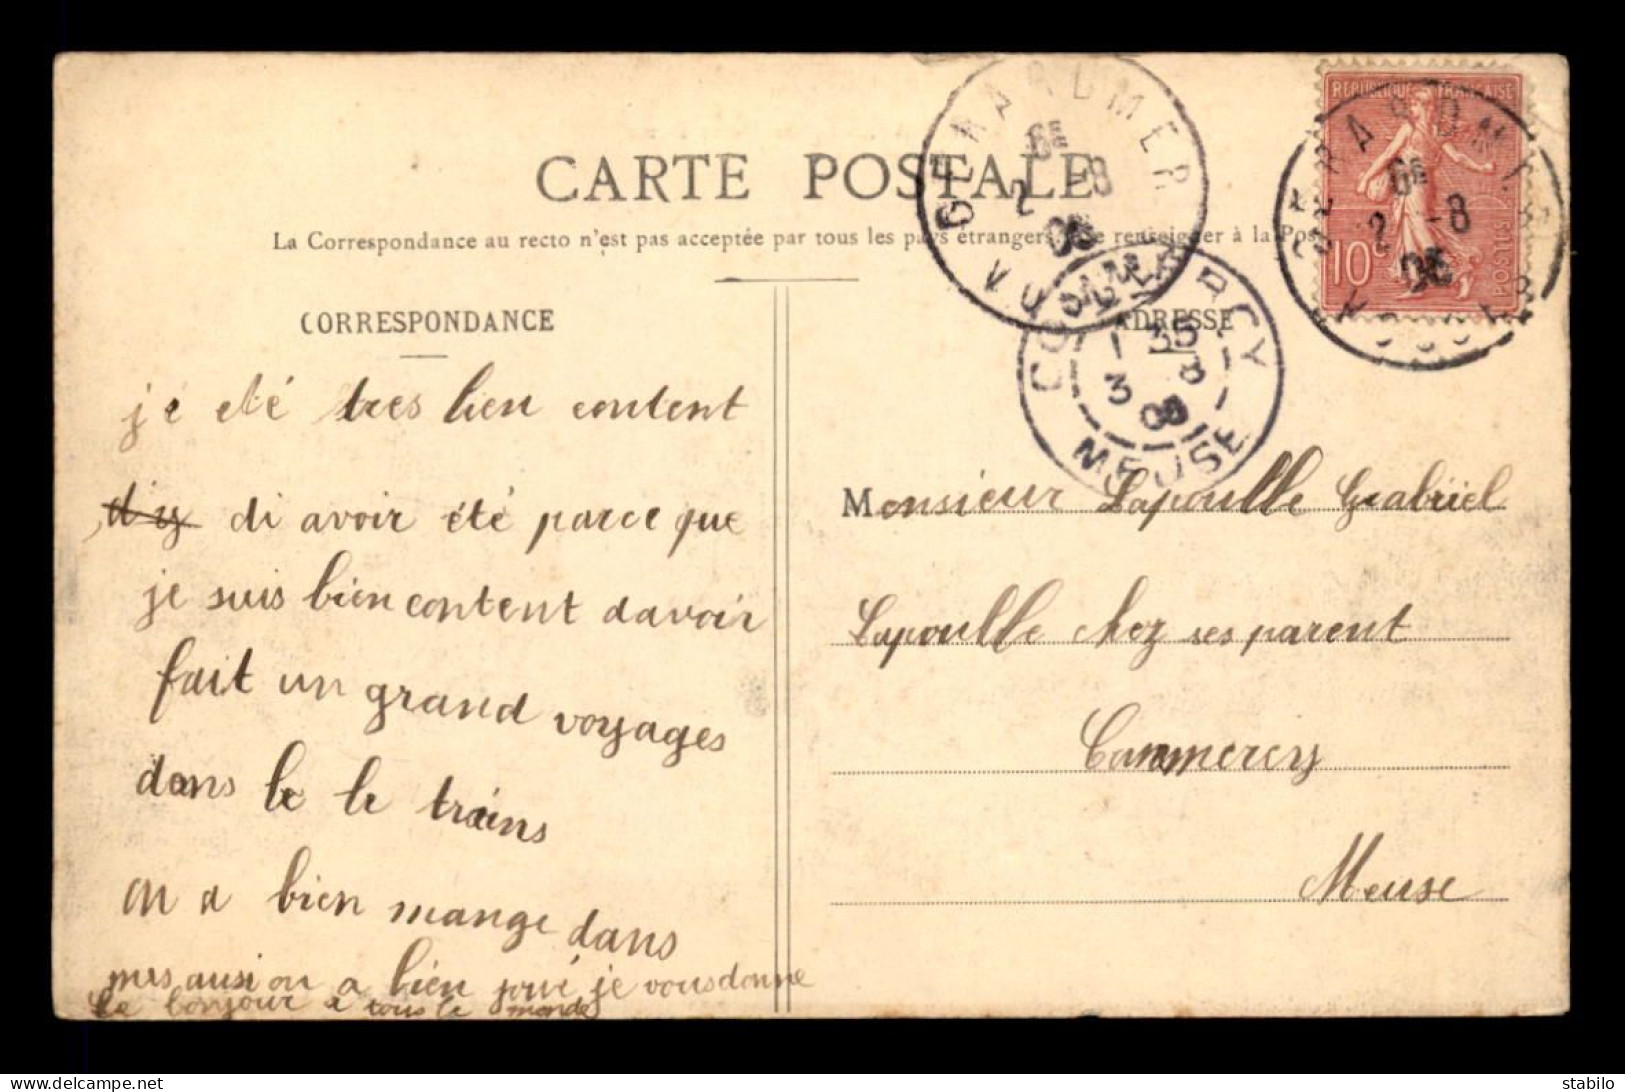 CARTE POSTALE
La Correspondance au recto n'est pas acceptée par tous les pays étrangers. Se renseigner à la Pos
CORRESPONDANCE
ADRESSE
GERARDMER
6E
2 -8
05
VOSGES
REPUBLIQUE FRANÇAISE
10c
POSTES
GERARDMER
6E
2 -8
05
VOSGES
COMMERCY
1 35
3 8
05
MEUSE
je été tres bien content
d'y di avoir été parce que
je suis bien content davoir
fait un grand voyages
dans le le trains
on a bien mange dans
mes ausi on a bien joué je vous donne
le bonjour a tous le monde
Monsieur Lapoulle Grabriel
Lapoulle chez ses parent
Commercy
Meuse
stabilo